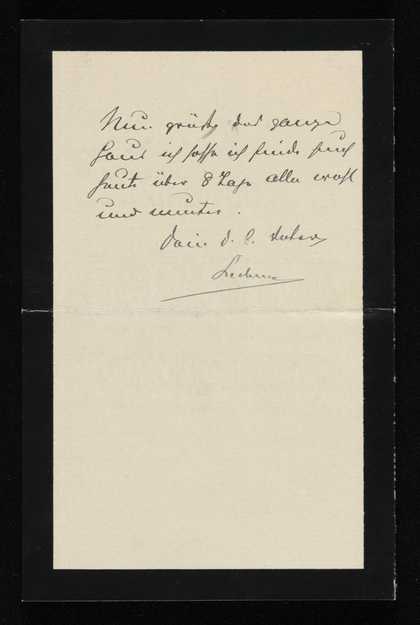 Nun grüße das ganze
Haus ich hoffe ich finde Euch
heute über 8 Tage alle wohl
und munter.
Dein d. l.